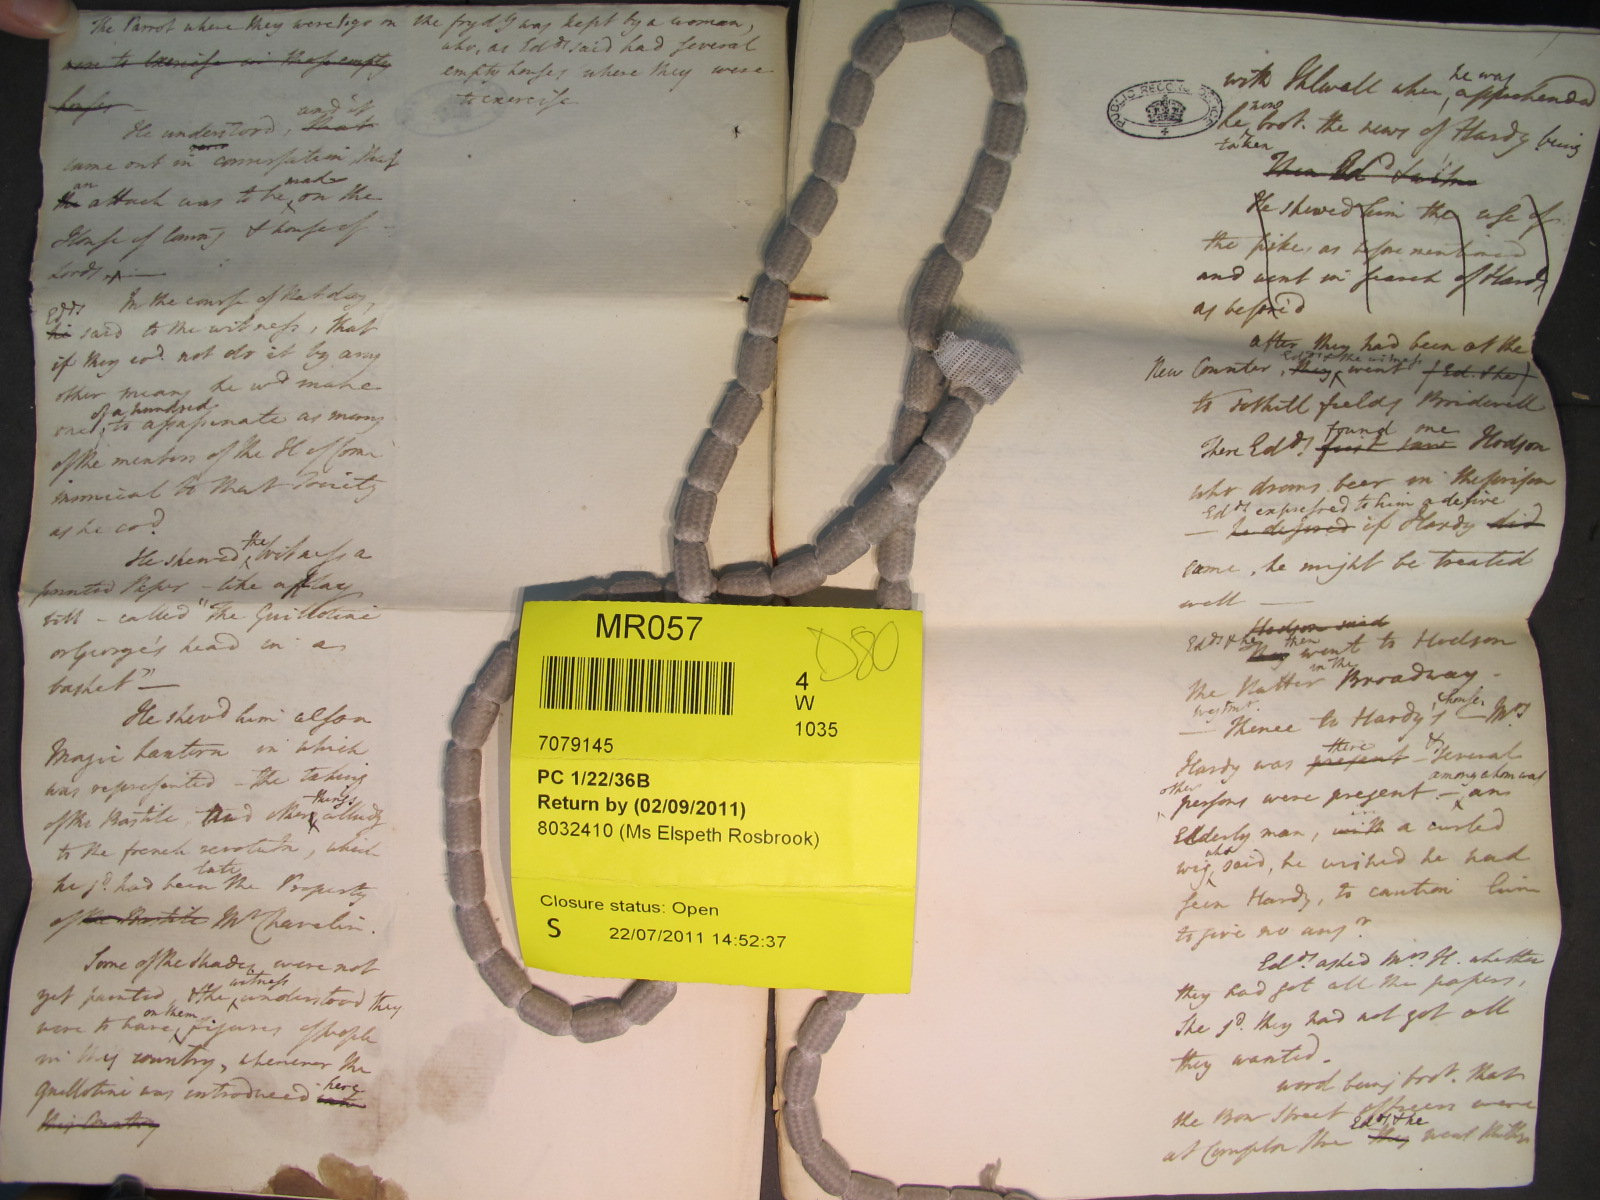 The Parrot where they were to go on
were to exercise in those empty
houses
the fry.d G was kept by a woman,
who, as Edds said had several
empty houses where they were
to exercise
He understood, and it
that
came out in conversation that
an
the attack was to be made on the
House of Comns & house of
Lords
In the course of that day,
Edds
he said to the witness, that
if they cod not do it by any
other means he wod make
of a hundred
one, to assassinate as many
of the members of the H of Coms
inimical to that Society
as he cod
He shewed the Witness a
printed Paper - like a play
bill - called "The Guillotine
or George's head in a
basket" -
He shewd him also a
Magic Lantern in which
was represented - the taking
of the Bastile, and other things alluding
to the french revolution, which
he sd had been late the Property
of the Bastile Mr Chavelin.
Some of the shades were not
yet painted, & the witness understood they
were to have on them figures of people
in this country, whenever the
guillotine was introduced here
into
this Country
PUBLIC RECORD OFFICE
with Thelwall when he was apprehended
he now brot. the news of Hardy being
taken
Then Edds
He shewed him the use of
the pike, as before mentioned
and went in search of Hardy
as before'd
after they had been at the
New Counter, they Edds & the witness went (Ed. & he)
to tothill fields Bridewell
There Edds found one
first saw Hodson
who draws beer in the prison
Edds expressed to him a desire
- he desired if Hardy did
came, he might be treated
well -
Hodson said
Edds & he then
they went to Hodson
in the
the Hatter Broadway -
Westmr.
- Thence to Hardy's house. - Mrs
Hardy was there
present - & several
other persons were present - among whom was an
Elderly man, with a curled
wig, who said, he wished he had
seen Hardy, to caution him
to give no answr
Edds asked Mrs H. whether
they had got all the papers,
She sd. they had not got all
they wanted.
word being brot. that
the Bow Street officers were
at Compton Edds & he
they went thither
MR057
D80
4
W
1035
7079145
PC 1/22/36B
Return by (02/09/2011)
8032410 (Ms Elspeth Rosbrook)
Closure status: Open
S 22/07/2011 14:52:37